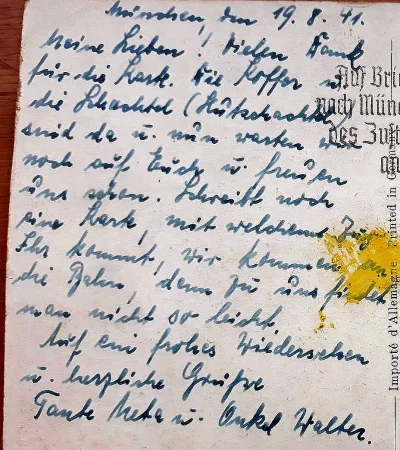 München, den 19. 8. 41.
Meine Lieben! Vielen Dank
für die Karte. Die Koffer u.
die Schachtel (Hutschachtel)
sind da u. nun warten wir
noch auf Euch u. freuen
uns schon. Schreibt noch
eine Karte, mit welchem Zug
Ihr kommt, wir kommen an
die Bahn, denn zu uns findet
man nicht so leicht.
Auf ein frohes Wiedersehen
u. herzliche Grüße
Tante Meta u. Onkel Walter.
Auf Brie
nach Münc
des Zust
an
Importé d'Allemagne Printed in